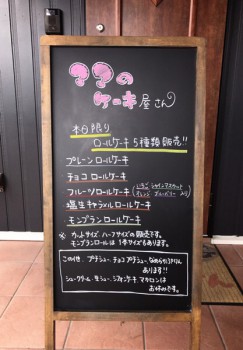 ??の
ケーキ屋さん
本日限り
ロールケーキ 5種類販売!!
プレーンロールケーキ
チョコロールケーキ
フルーツロールケーキ
塩生キャラメルロールケーキ
モンブランロールケーキ
※ カットサイズ、ハーフサイズの販売です。
モンブランロールは 1本サイズもあります。
この他、プチシュー、チョコプチシュー、なめらかプリン
あります!!
シュークリーム・生シュー・シフォンケーキ、マカロンは
お休みです。